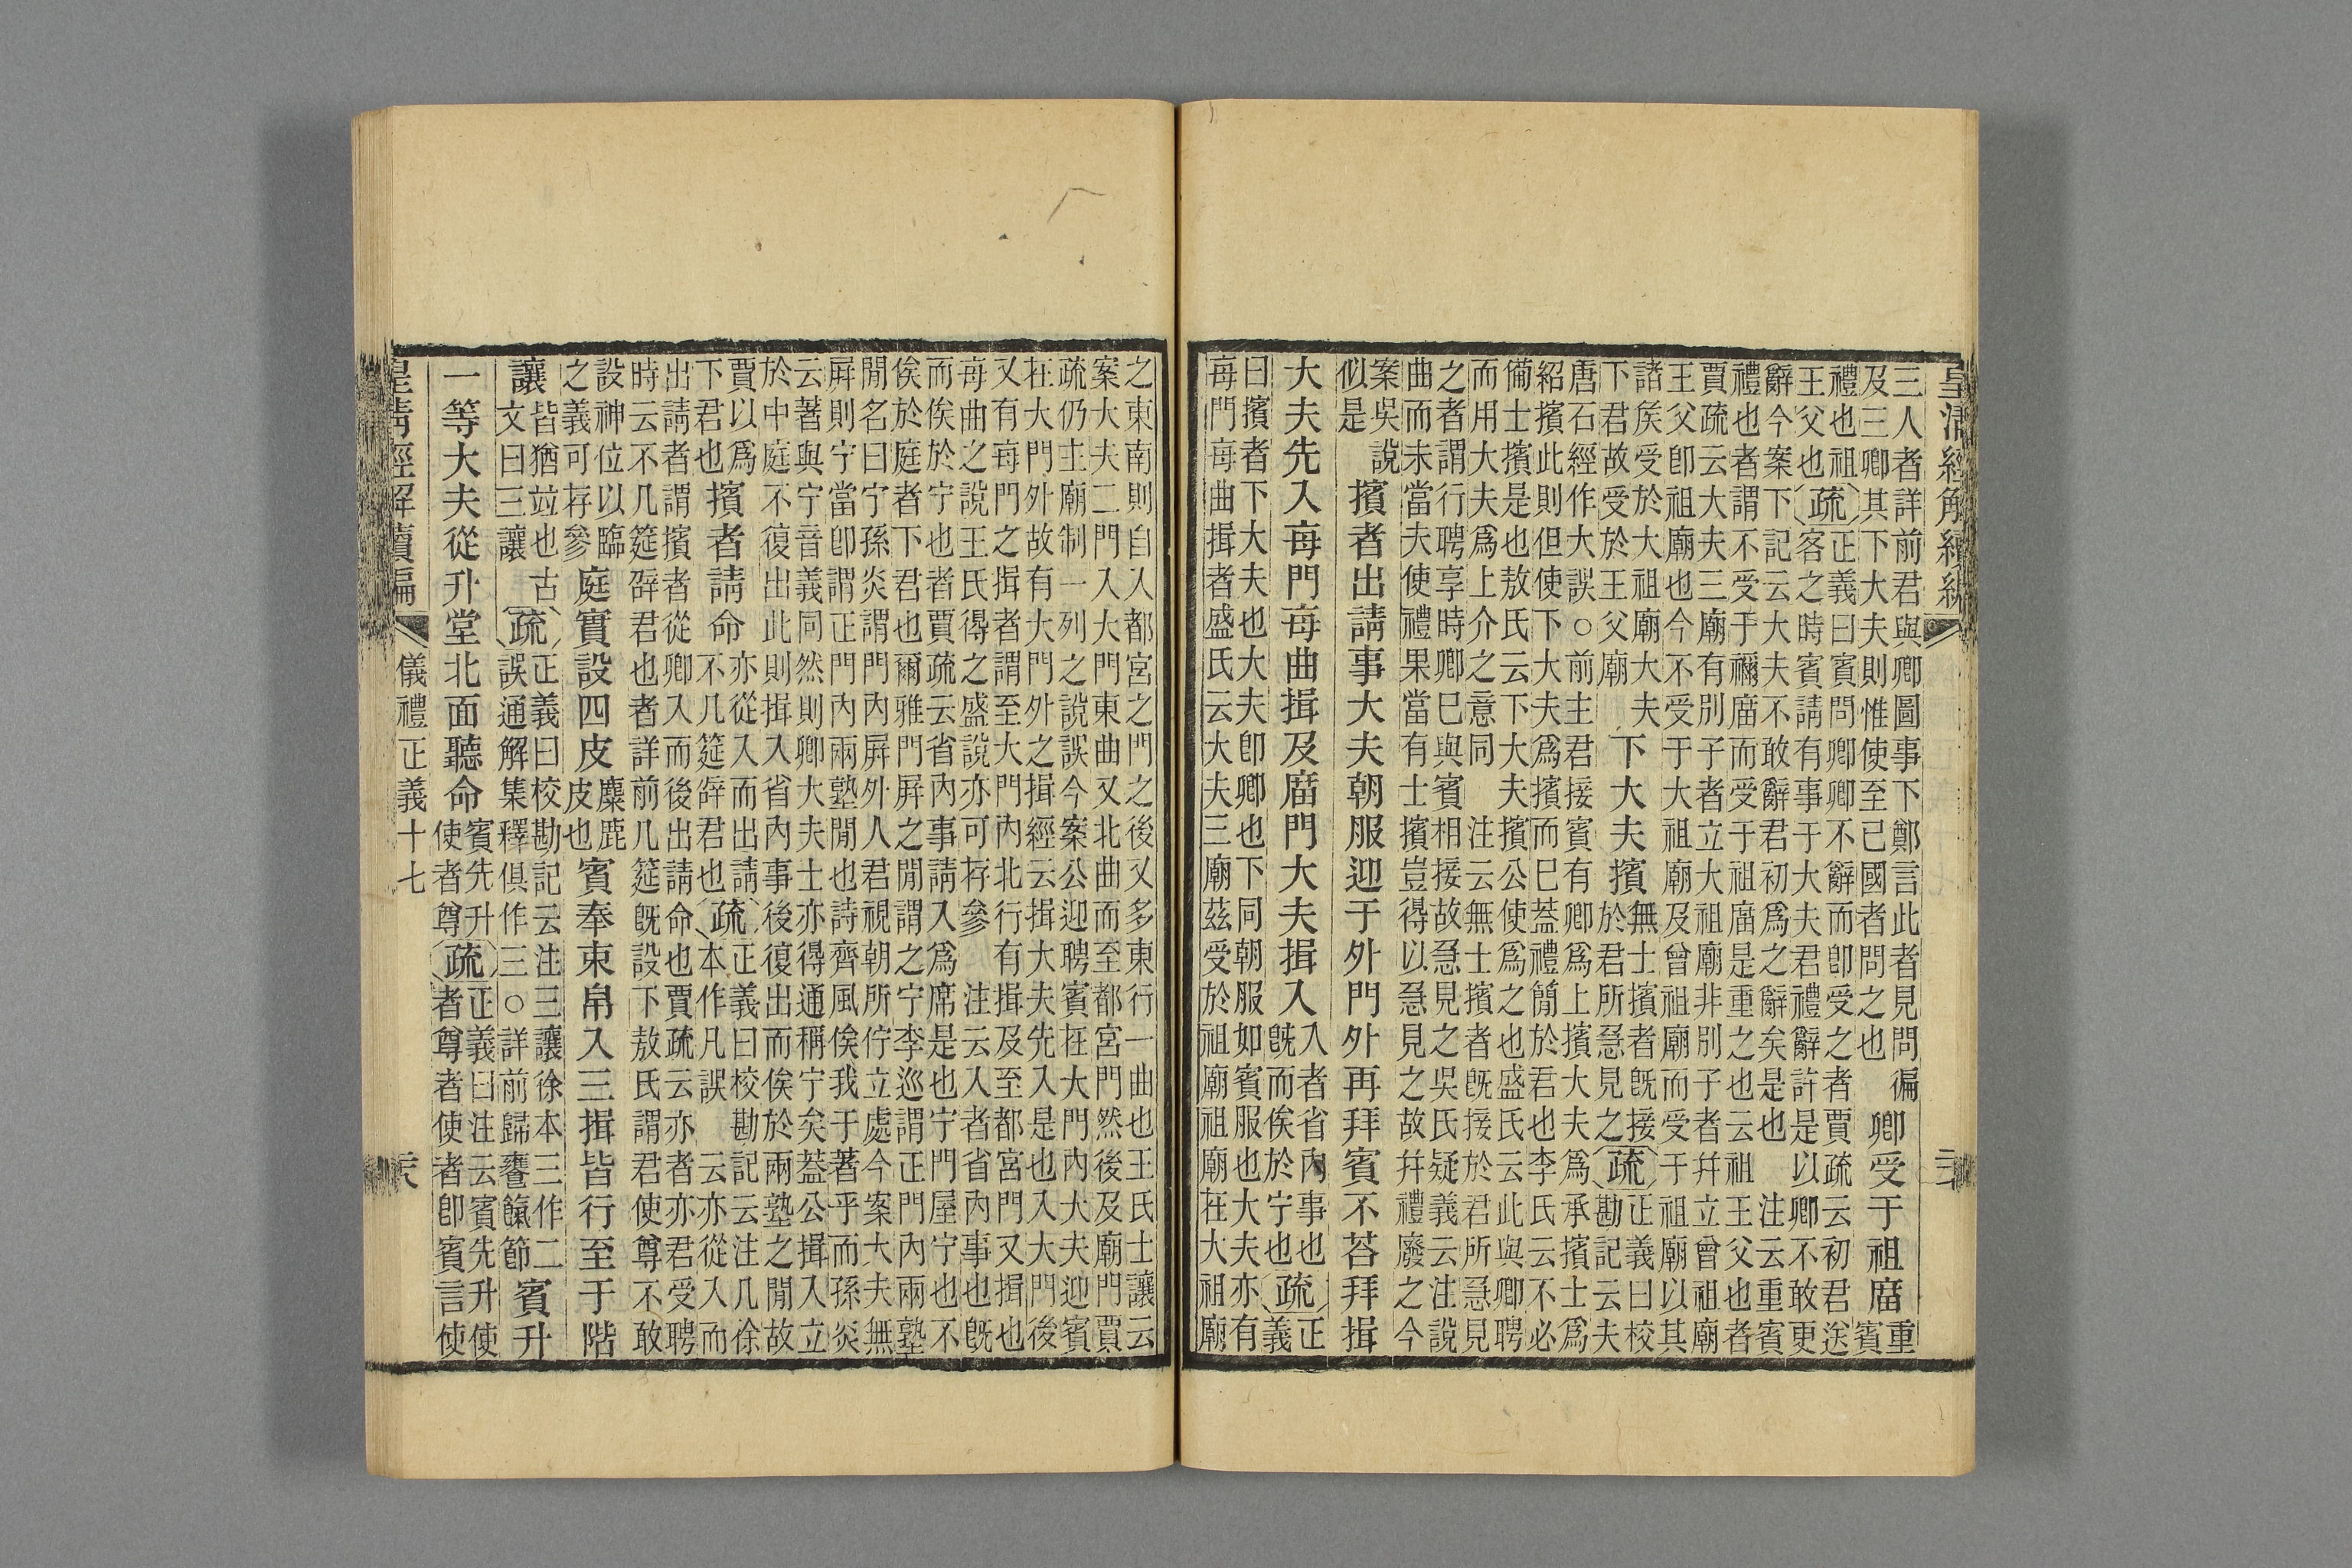 皇清經解續編
三人者詳前君與卿圖事下鄭言此者見問徧
及三卿其下大夫則惟使至己國者問之也
卿受于祖庿
重
賓
禮也祖
王父也
疏
正義曰賓問卿卿不辭而卽受之者賈疏云初君送
客之時賓請有事于大夫君禮辭許是以卿不敢更
辭今案下記云大夫不敢辭君初爲之辭矣是也 注云重賓
禮也者謂不受于禰庿而受于祖庿是重之也云祖王父也者
賈疏云大夫三廟有別子者立大祖廟非別子者幷立曾祖廟
王父卽祖廟也今不受于大祖廟及曾祖廟而受于祖廟以其
諸矦受於大祖廟大夫
下君故受於王父廟
下大夫擯
無士擯者旣接
於君所急見之
疏
正義曰校
勘記云夫
唐石經作大誤○前主君接賓有卿爲上擯大夫爲承擯士爲
紹擯此則但使下大夫爲擯而已蓋禮簡於君也李氏云不必
備士擯是也敖氏云下大夫擯公使爲之也盛氏云此與卿聘
而用大夫爲上介之意同 注云無士擯者旣接於君所急見
之者謂行聘享時卿已與賓相接故急見之吳氏疑義云注說
曲而未當夫使禮果當有士擯豈得以急見之故幷禮廢之今
案吳說
似是
擯者出請事大夫朝服迎于外門外再拜賓不荅拜揖
大夫先入每門每曲揖及庿門大夫揖入
入者省內事也
旣而俟於宁也
疏
正
義
曰擯者下大夫也大夫卽卿也下同朝服如賓服也大夫亦有
每門每曲揖者盛氏云大夫三廟茲受於祖廟祖廟在大祖廟
之東南則自入都宮之門之後又多東行一曲也王氏士讓云
案大夫二門入大門東曲又北曲而至都宮門然後及廟門賈
疏仍主廟制一列之說誤今案公迎聘賓在大門內大夫迎賓
在大門外故有大門外之揖經云揖大夫先入是也入大門後
又有每門之揖者謂至大門內北行有揖及至都宮門又揖也
每曲之說王氏得之盛說亦可存參 注云入者省內事也旣
而俟於宁也者賈疏云省內事請入爲席是也宁門屋宁也不
俟於庭者下君也爾雅門屏之閒謂之宁李巡謂正門內兩塾
閒名曰宁孫炎謂門內屏外人君視朝所佇立處今案大夫無
屏則宁當卽謂正門內兩塾閒也詩齊風俟我于著乎而孫炎
云著與宁音義同然則卿大夫士亦得通稱宁矣蓋公揖入立
於中庭不復出此則揖入省內事後復出而俟於兩塾之閒故
賈以爲
下君也
擯者請命
亦從入而出請
不几筵辟君也
疏
正義曰校勘記云注几徐
本作凡誤 云亦從入而
出請者謂擯者從卿入而後出請命也賈疏云亦者亦君受聘
時云不几筵辟君也者詳前几筵旣設下敖氏謂君使尊不敢
設神位以臨
之義可存參
庭實設四皮
麋鹿
皮也
賓奉束帛入三揖皆行至于階
讓
皆猶竝也古
文曰三讓
疏
正義曰校勘記云注三讓徐本三作二
誤通解集釋俱作三○詳前歸饔餼節
賓升
一等大夫從升堂北面聽命
賓先升
使者尊
疏
正義曰注云賓先升使
者尊者使者卽賓言使
皇清經解續編
儀禮正義十七